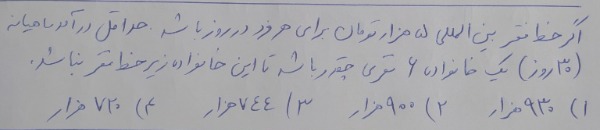 اگر خط فقر بین المللی ۵ هزار تومان برای هر فرد در روز باشد. حداقل درآمد ماهیانه
(۳۰ روز) یک خانواده ۶ نفری چقدر باشد تا این خانواده زیر خط فقر نباشد.
۱) ۹۳۰ هزار ۲) ۹۰۰ هزار ۳) ۷۴۴ هزار ۴) ۷۲۰ هزار